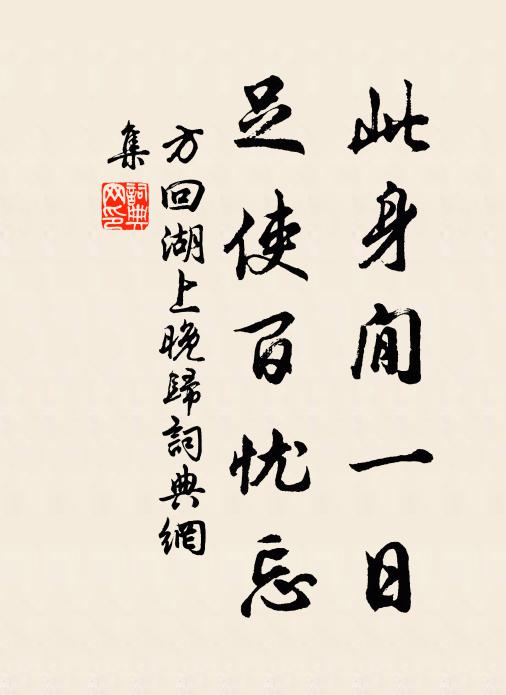 此身閒一日
足使百忧忘
方回湖上晚歸詞典網
集
詞典网印